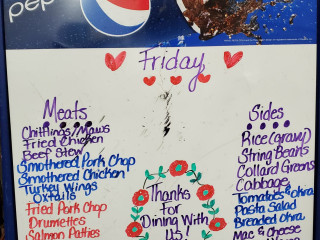 pep
Friday
Meats
Chittlings/Maws
Fried Chicken
Beef Stew
Smothered Pork Chop
Smothered Chicken
Turkey Wings
Oxtails
Fried Pork Chop
Drumettes
Salmon Patties
Thanks
For
Dining With
US!
Sides
Rice (Gravy)
String Beans
Collard Greens
Cabbage
Tomatoes & Okra
Pasta Salad
Breaded Okra
Mac & Cheese